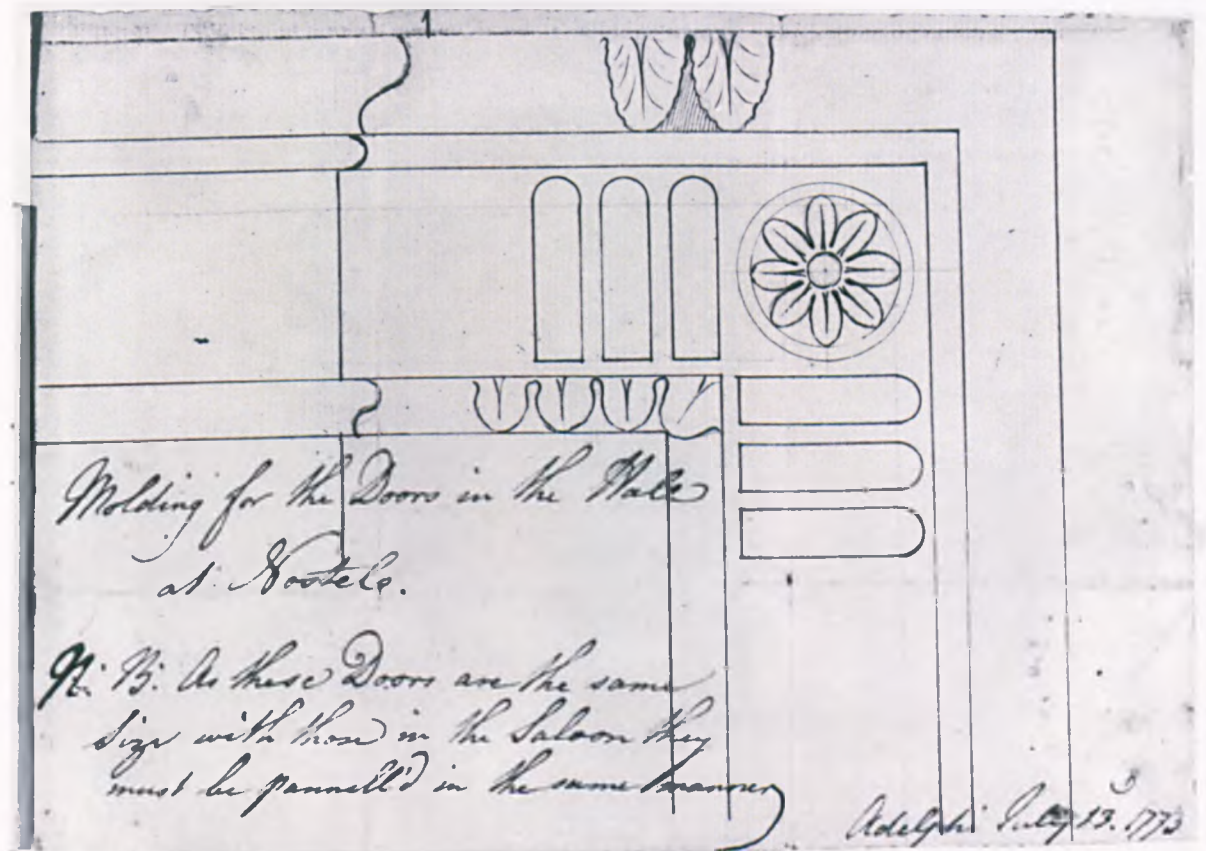 Molding for the Doors in the Hall
at Nostell.
N: B: As these Doors are the same
size with those in the Saloon they
must be pannell'd in the same manner
Adelphi July 13. 1773